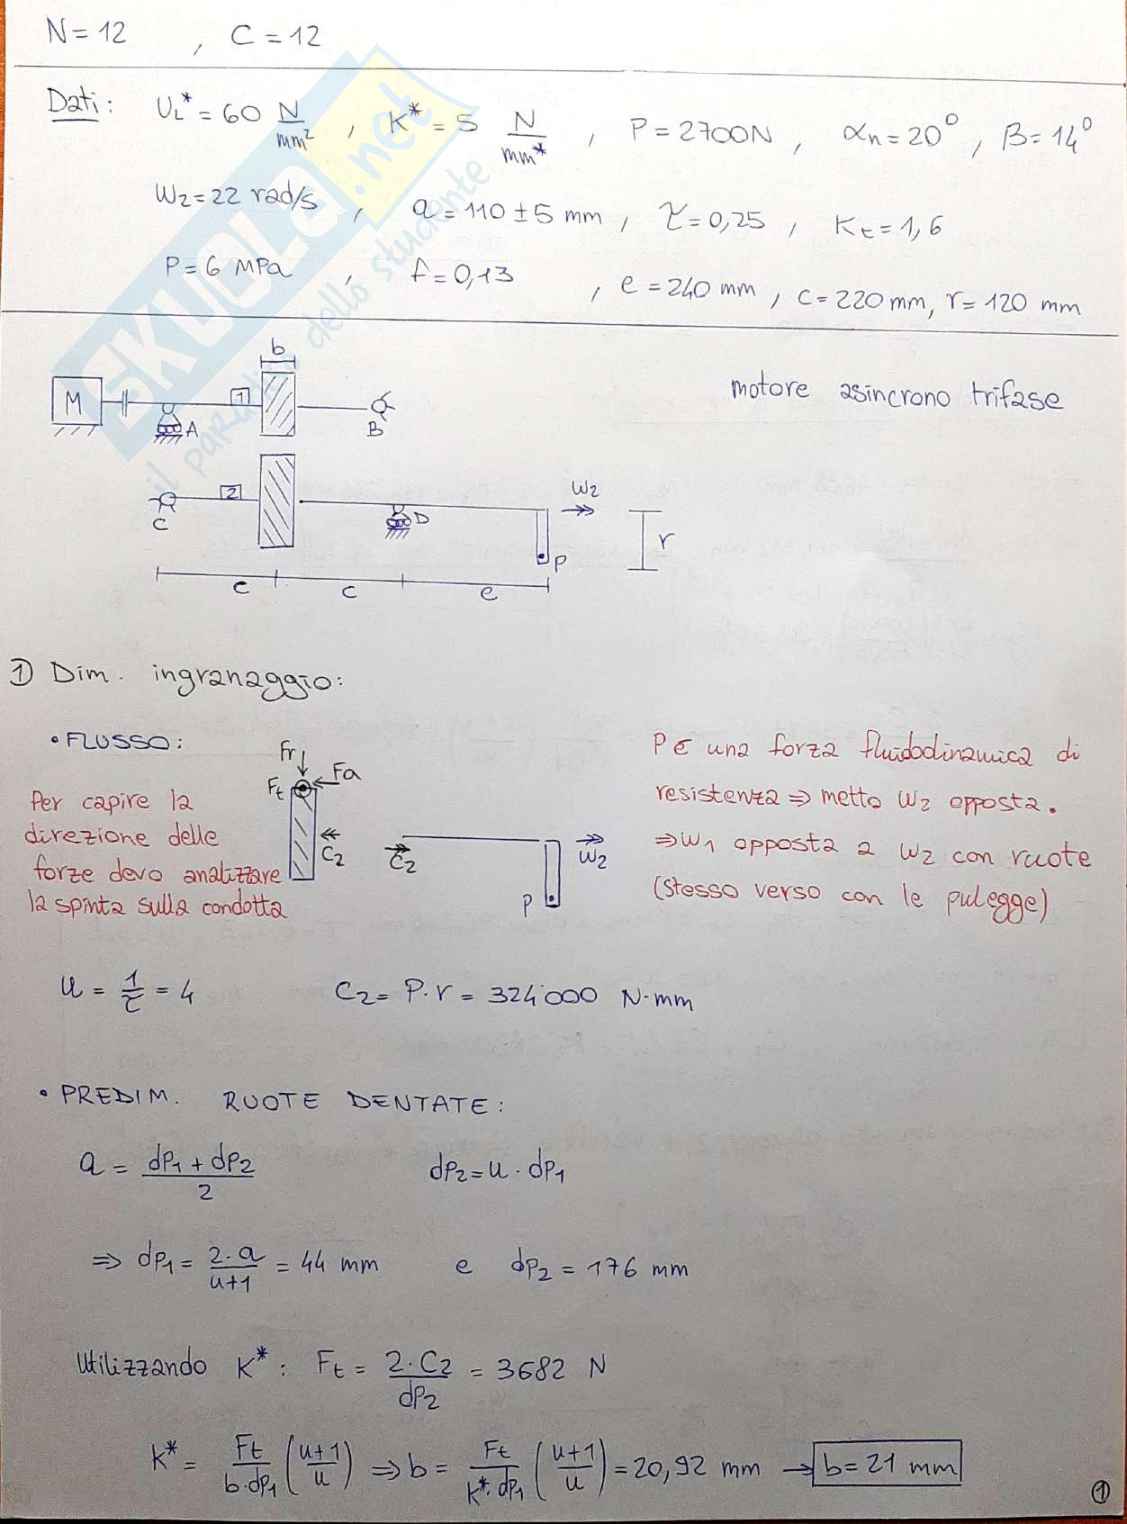 N=12 , C=12
Dati: UL* = 60 N/mm² , K* = 5 N/mm* , P=2700N , αn=20° , β=14°
W2=22 rad/s , a=110±5 mm , τ=0,25 , Kt=1,6
P=6 MPa , f=0,13 , e=240 mm , c=220 mm, r=120 mm
SKUOLA.net
il paradiso dello studente
b
M
1
A
B
motore asincrono trifase
2
C
D
W2
P
r
c c e
① Dim. ingranaggio:
• FLUSSO:
Per capire la
direzione delle
forze devo analizzare
la spinta sulla condotta
Fr
Ft
Fa
C2
C2
W2
P
P è una forza fluidodinamica di
resistenza ⇒ metto W2 opposta.
⇒W1 opposta a W2 con ruote
(stesso verso con le pulegge)
u = 1/τ = 4 C2= P·r = 324'000 N·mm
• PREDIM. RUOTE DENTATE:
a = (dp1 + dp2)/2 dp2=u·dp1
⇒ dp1 = 2·a/(u+1) = 44 mm e dp2 = 176 mm
Utilizzando K*: Ft = 2·C2/dp2 = 3682 N
K* = Ft/(b·dp1) ((u+1)/u) ⇒ b = Ft/(K*·dp1) ((u+1)/u) = 20,92 mm → b=21 mm
①